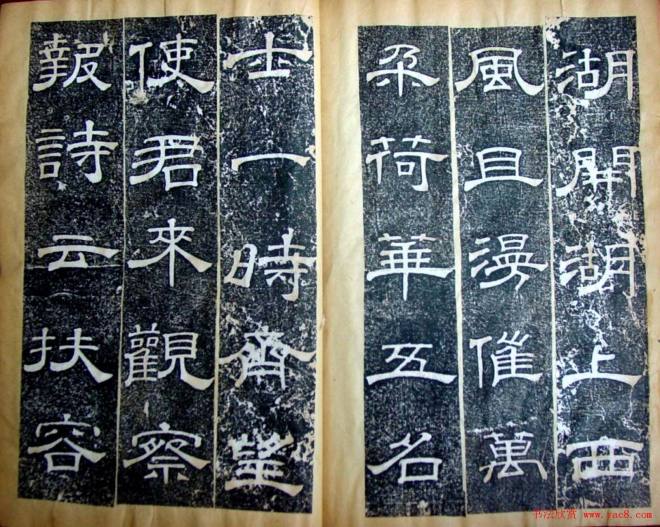 湖開湖上西
風且漫催萬
朵荷華五名
士一時齊望
使君來觀察
報詩云扶容
书法欣赏 www.yac8.com